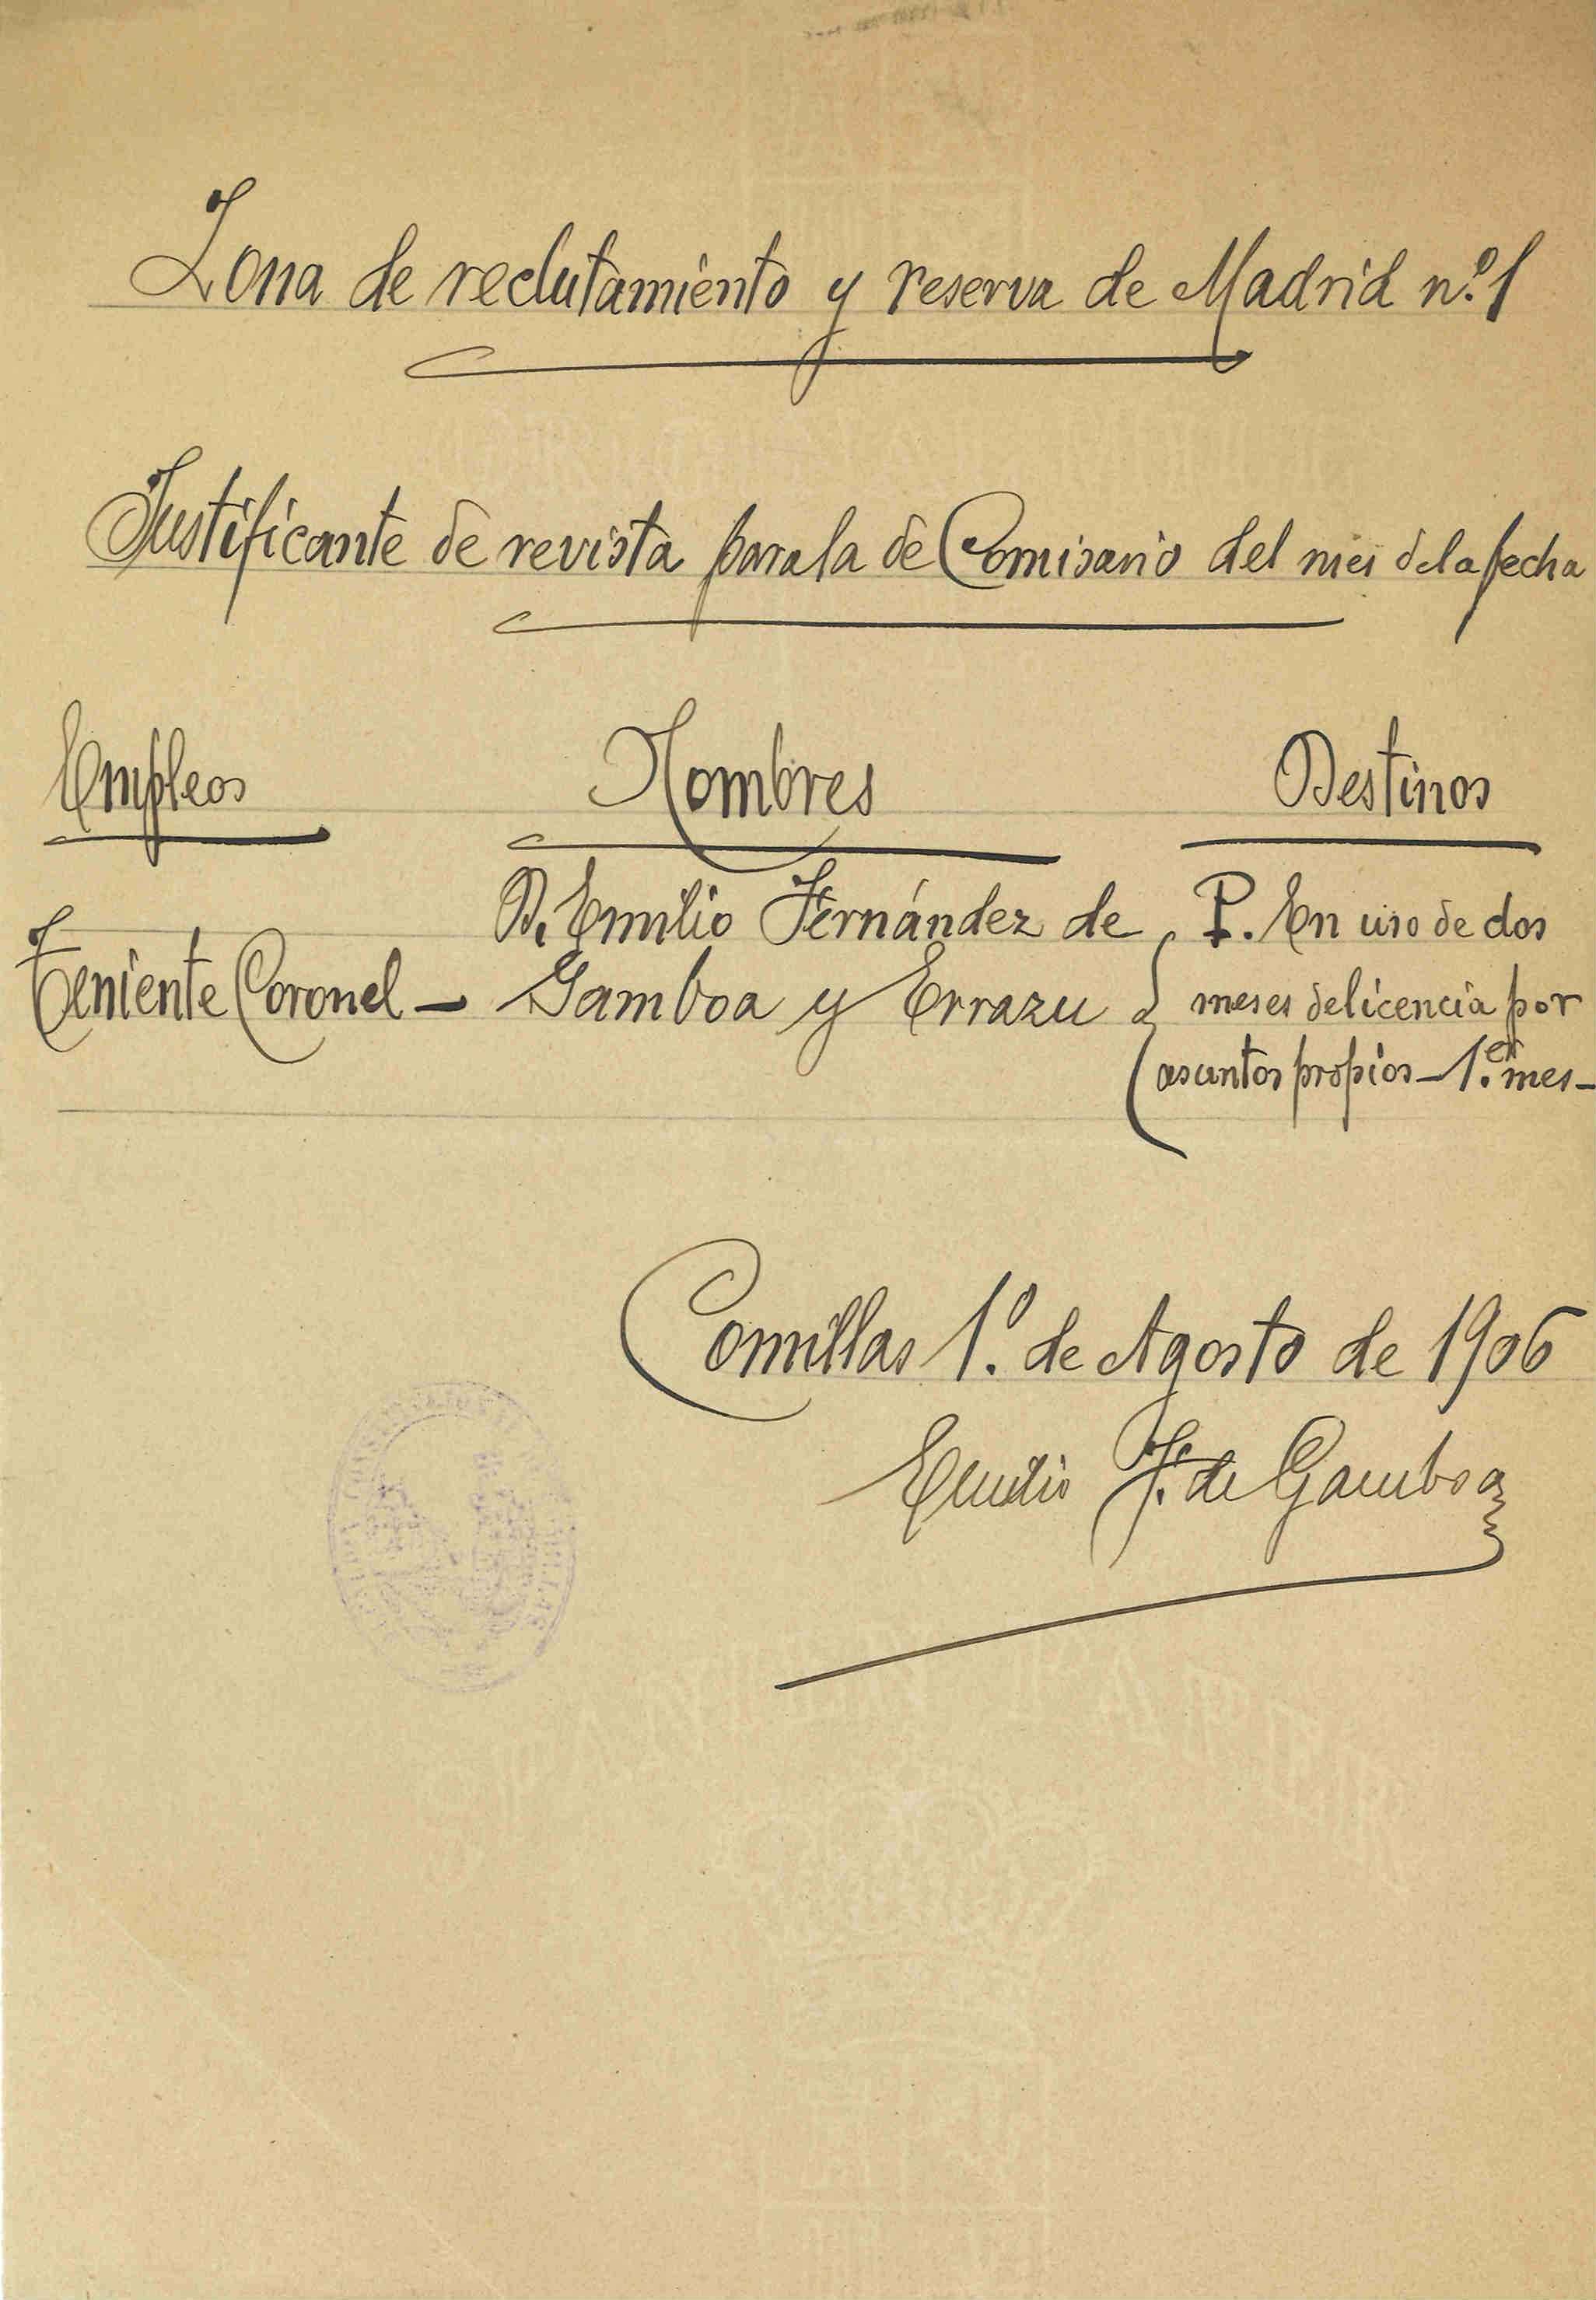 Zona de reclutamiento y reserva de Madrid n.º 1
Justificante de revista para la de Comisario del mes de la fecha
Empleos Nombres Destinos
Teniente Coronel — D. Emilio Fernández de
Gamboa y Errazu
P. En uso de dos
meses de licencia por
asuntos propios — 1.er mes —
Comillas 1.º de Agosto de 1906
Emilio F. de Gamboa